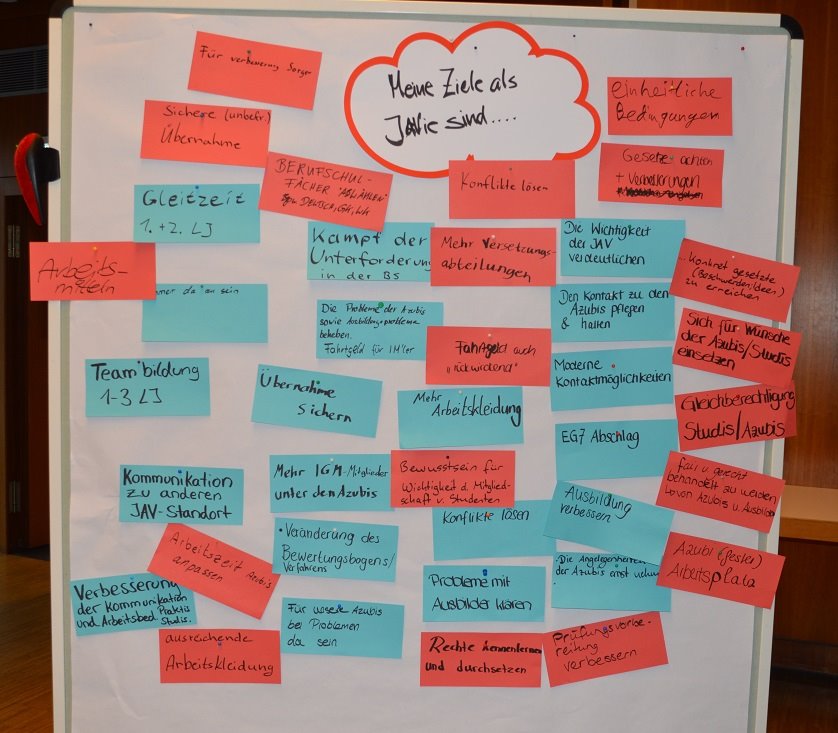 Für verbesserung Sorgen
Meine Ziele als
JAVie sind....
einheitliche
Bedingungen
Sichere (unbefr.)
Übernahme
BERUFSCHUL-
FÄCHER
DEUTSCH,
Konflikte lösen
Gesetze achten
+ Verbesserungen
Gleitzeit
1. + 2. LJ
Kampf der
Unterforderung
in der BS
Mehr Versetzungs-
abteilungen
Die Wichtigkeit
der JAV
verdeutlichen
Arbeits-
mitteln
da an sein
Konkret gesetzte
(Beschwerden/Ideen)
zu erreichen
Die Probleme der Azubis
sowie Ausbildungsprobleme
beheben.
Fahrtgeld für IM'ler
Fahrtgeld auch
"rückwirdend"
Den Kontakt zu den
Azubis pflegen
& halten
Sich für Wünsche
der Azubis/Studis
einsetzen
Teambildung
1-3 LJ
Übernahme
Sichern
Mehr
Arbeitskleidung
Moderne
Kontaktmöglichkeiten
Gleichberechtigung
Studis/Azubis
EG7 Abschlag
Kommunikation
zu anderen
JAV-Standort
Mehr IGM-Mitglieder
unter den Azubis
Bewusstsein für
Wichtigkeit d. Mitglied-
schaft v. Studenten
Konflikte lösen
Ausbildung
verbessern
fair u. gerecht
behandelt zu werden
von Azubis u. Ausbilder
Arbeitszeit Azubis
anpassen
Veränderung des
Bewertungsbogens/
Verfahrens
Die Angelegenheiten
der Azubis ernst
Azubi
Arbeitsplatz
Verbesserung
der Kommunikation
und Arbeitsbed.
Studis.
Für unsere Azubis
bei Problemen
da sein
Probleme mit
Ausbilder klären
ausreichende
Arbeitskleidung
Rechte kennenlernen
und durchsetzen
Prüfungsvorbe-
reitung
verbessern